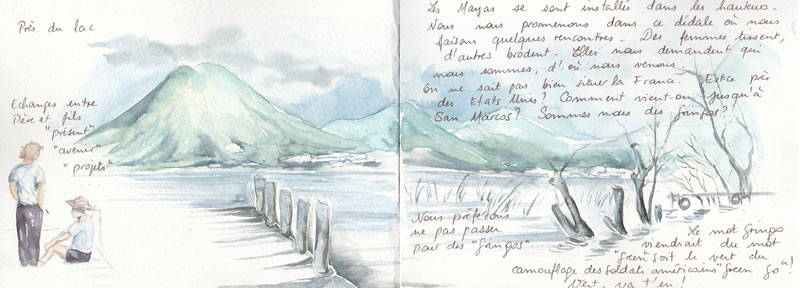 Près du lac
Echanges entre
Père et fils
"présent"
"avenir"
"projets"
Les Mayas se sont installés dans les hauteurs.
Nous nous promenons dans ce dédale où nous
faisons quelques rencontres. Des femmes tissent,
d'autres brodent. Elles nous demandent qui
nous sommes, d'où nous venons.
On ne sait pas bien situer la France. Est ce près
des Etats Unis? Comment vient-on jusqu'à
San Marcos? Sommes nous des gringos?
Nous préférons
ne pas passer
pour des "gringos".
Le mot Gringo
viendrait du mot
"green" soit le vert du
camouflage des soldats américains "Green Go"!
Vert, va t'en!